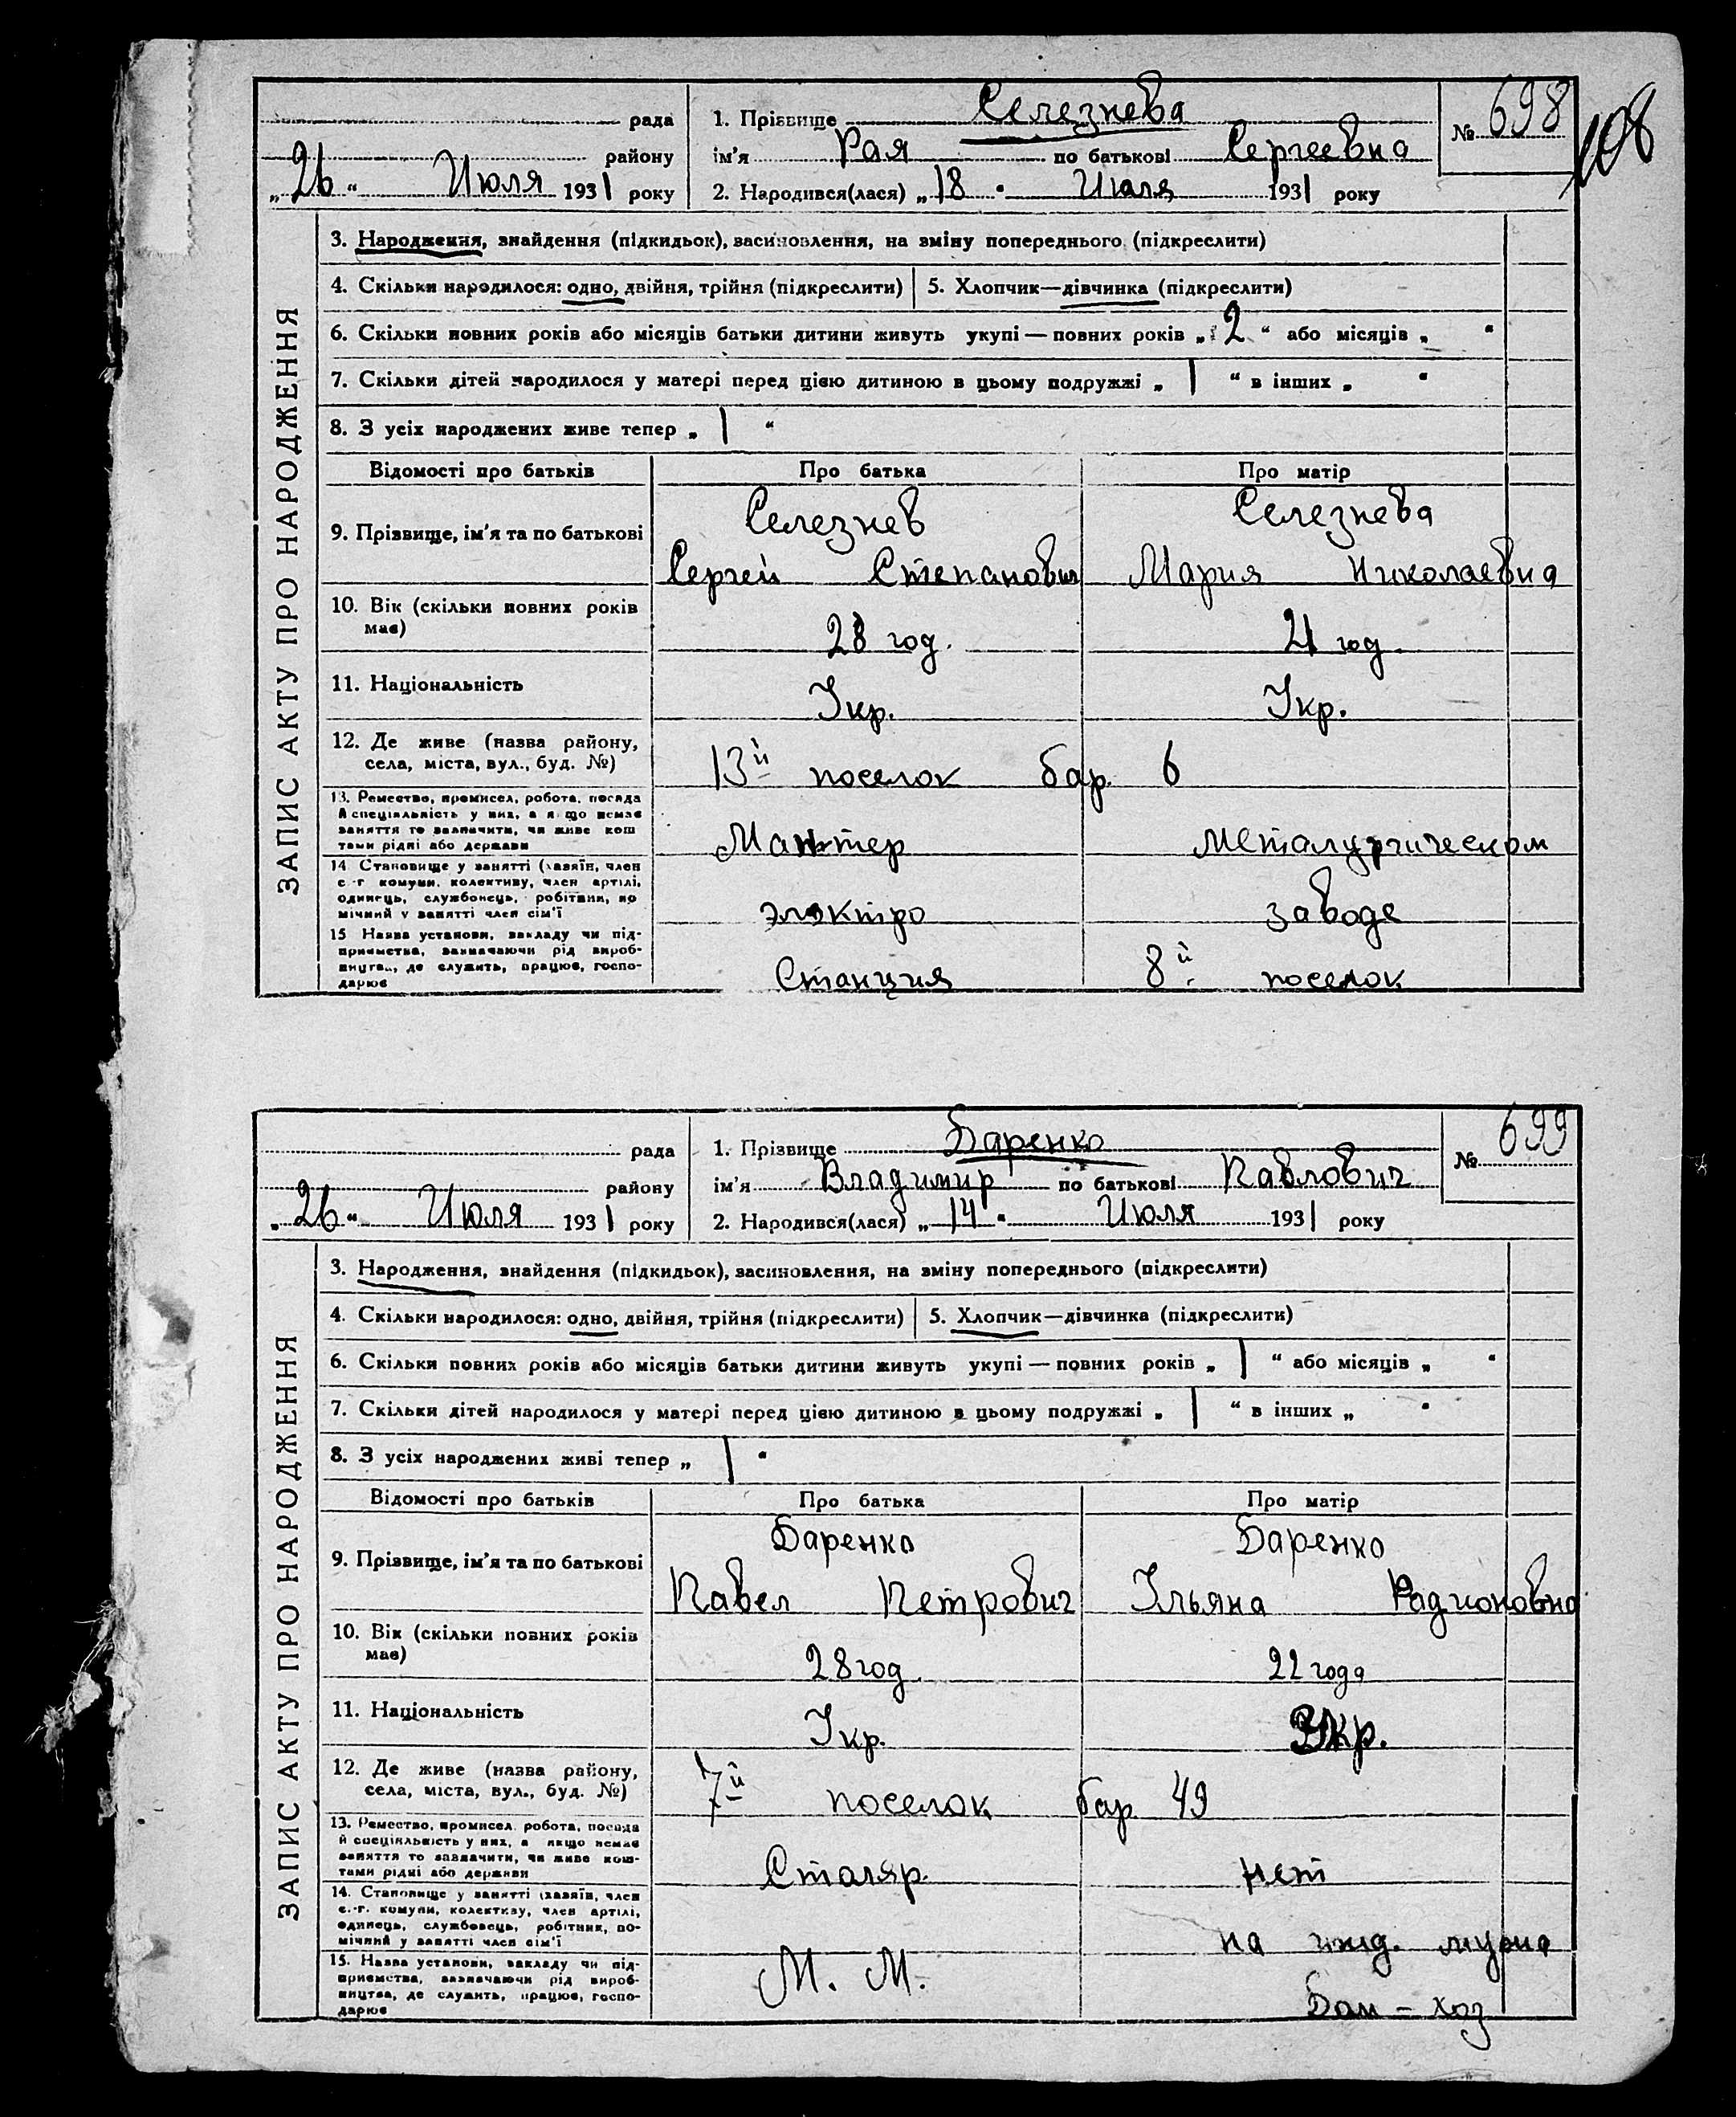 108
рада
району
„26“ Июля 1931 року
1. Прізвище Селезнева
ім'я Рая по батькові Сергеевна
2. Народився(лася) „18“ Июля 1931 року
№ 698
ЗАПИС АКТУ ПРО НАРОДЖЕННЯ
3. Народження, знайдення (підкидьок), васиновлення, на зміну попереднього (підкреслити)
4. Скільки народилося: одно, двійня, трійня (підкреслити)
5. Хлопчик—дівчинка (підкреслити)
6. Скільки повних років або місяців батьки дитини живуть укупі — повних років „2“ або місяців „ “
7. Скільки дітей народилося у матері перед цією дитиною в цьому подружжі „1“ в інших „ “
8. З усіх народжених живе тепер „1“
Відомості про батьків Про батька Про матір
9. Прізвище, ім'я та по батькові
Селезнев
Сергей Степанович
Селезнева
Мария Николаевна
10. Вік (скільки повних років
має)
28 год.
21 год.
11. Національність
Укр.
Укр.
12. Де живе (назва району,
села, міста, вул., буд. №)
13й поселок бар. 6
13. Ремество, промисел, робота, посада
й спеціяльність у них, а якщо немає
заняття то зазначити, чи живе кош
тами рідні або держави
Мантер
Металургическом
14 Становище у занятті (хазяїн, член
с.-г комуни, колективу, член артілі,
одинець, службовець, робітник, по
мічний у занятті член сім'ї
электро
заводе
15 Назва установи, закладу чи під-
приємства, зазначаючи рід вироб-
ництва, де служить, працює, госпо-
дарює
Станция
8й поселок
рада
району
„26“ Июля 1931 року
1. Прізвище Баренко
ім'я Владимир по батькові Павлович
2. Народився(лася) „14“ Июля 1931 року
№ 699
ЗАПИС АКТУ ПРО НАРОДЖЕННЯ
3. Народження, знайдення (підкидьок), засиновлення, на зміну попереднього (підкреслити)
4. Скільки народилося: одно, двійня, трійня (підкреслити)
5. Хлопчик—дівчинка (підкреслити)
6. Скільки повних років або місяців батьки дитини живуть укупі — повних років „1“ або місяців „ “
7. Скільки дітей народилося у матері перед цією дитиною в цьому подружжі „1“ в інших „ “
8. З усіх народжених живі тепер „1“
Відомості про батьків Про батька Про матір
9. Прізвище, ім'я та по батькові
Баренко
Павел Петрович
Баренко
Ульяна Радионовна
10. Вік (скільки повних років
має)
28 год.
22 года
11. Національність
Укр.
Укр.
12. Де живе (назва району,
села, міста, вул., буд. №)
7й поселок бар. 49
13. Ремество, промисел, робота, посада
й спеціяльність у них, а якщо немає
заняття то зазначити, чи живе кош-
тами рідні або держави
Столяр.
нет
14. Становище у занятті (хазяїн, член
с.-г. комуни, колективу, член артілі,
одинець, службовець, робітник, по-
мічний у занятті член сім'ї
на ижд. мужа
15. Назва установи, закладу чи під-
приємства, зазначаючи рід вироб-
ництва, де служить, працює, госпо-
дарює
М. М.
Дом - хоз